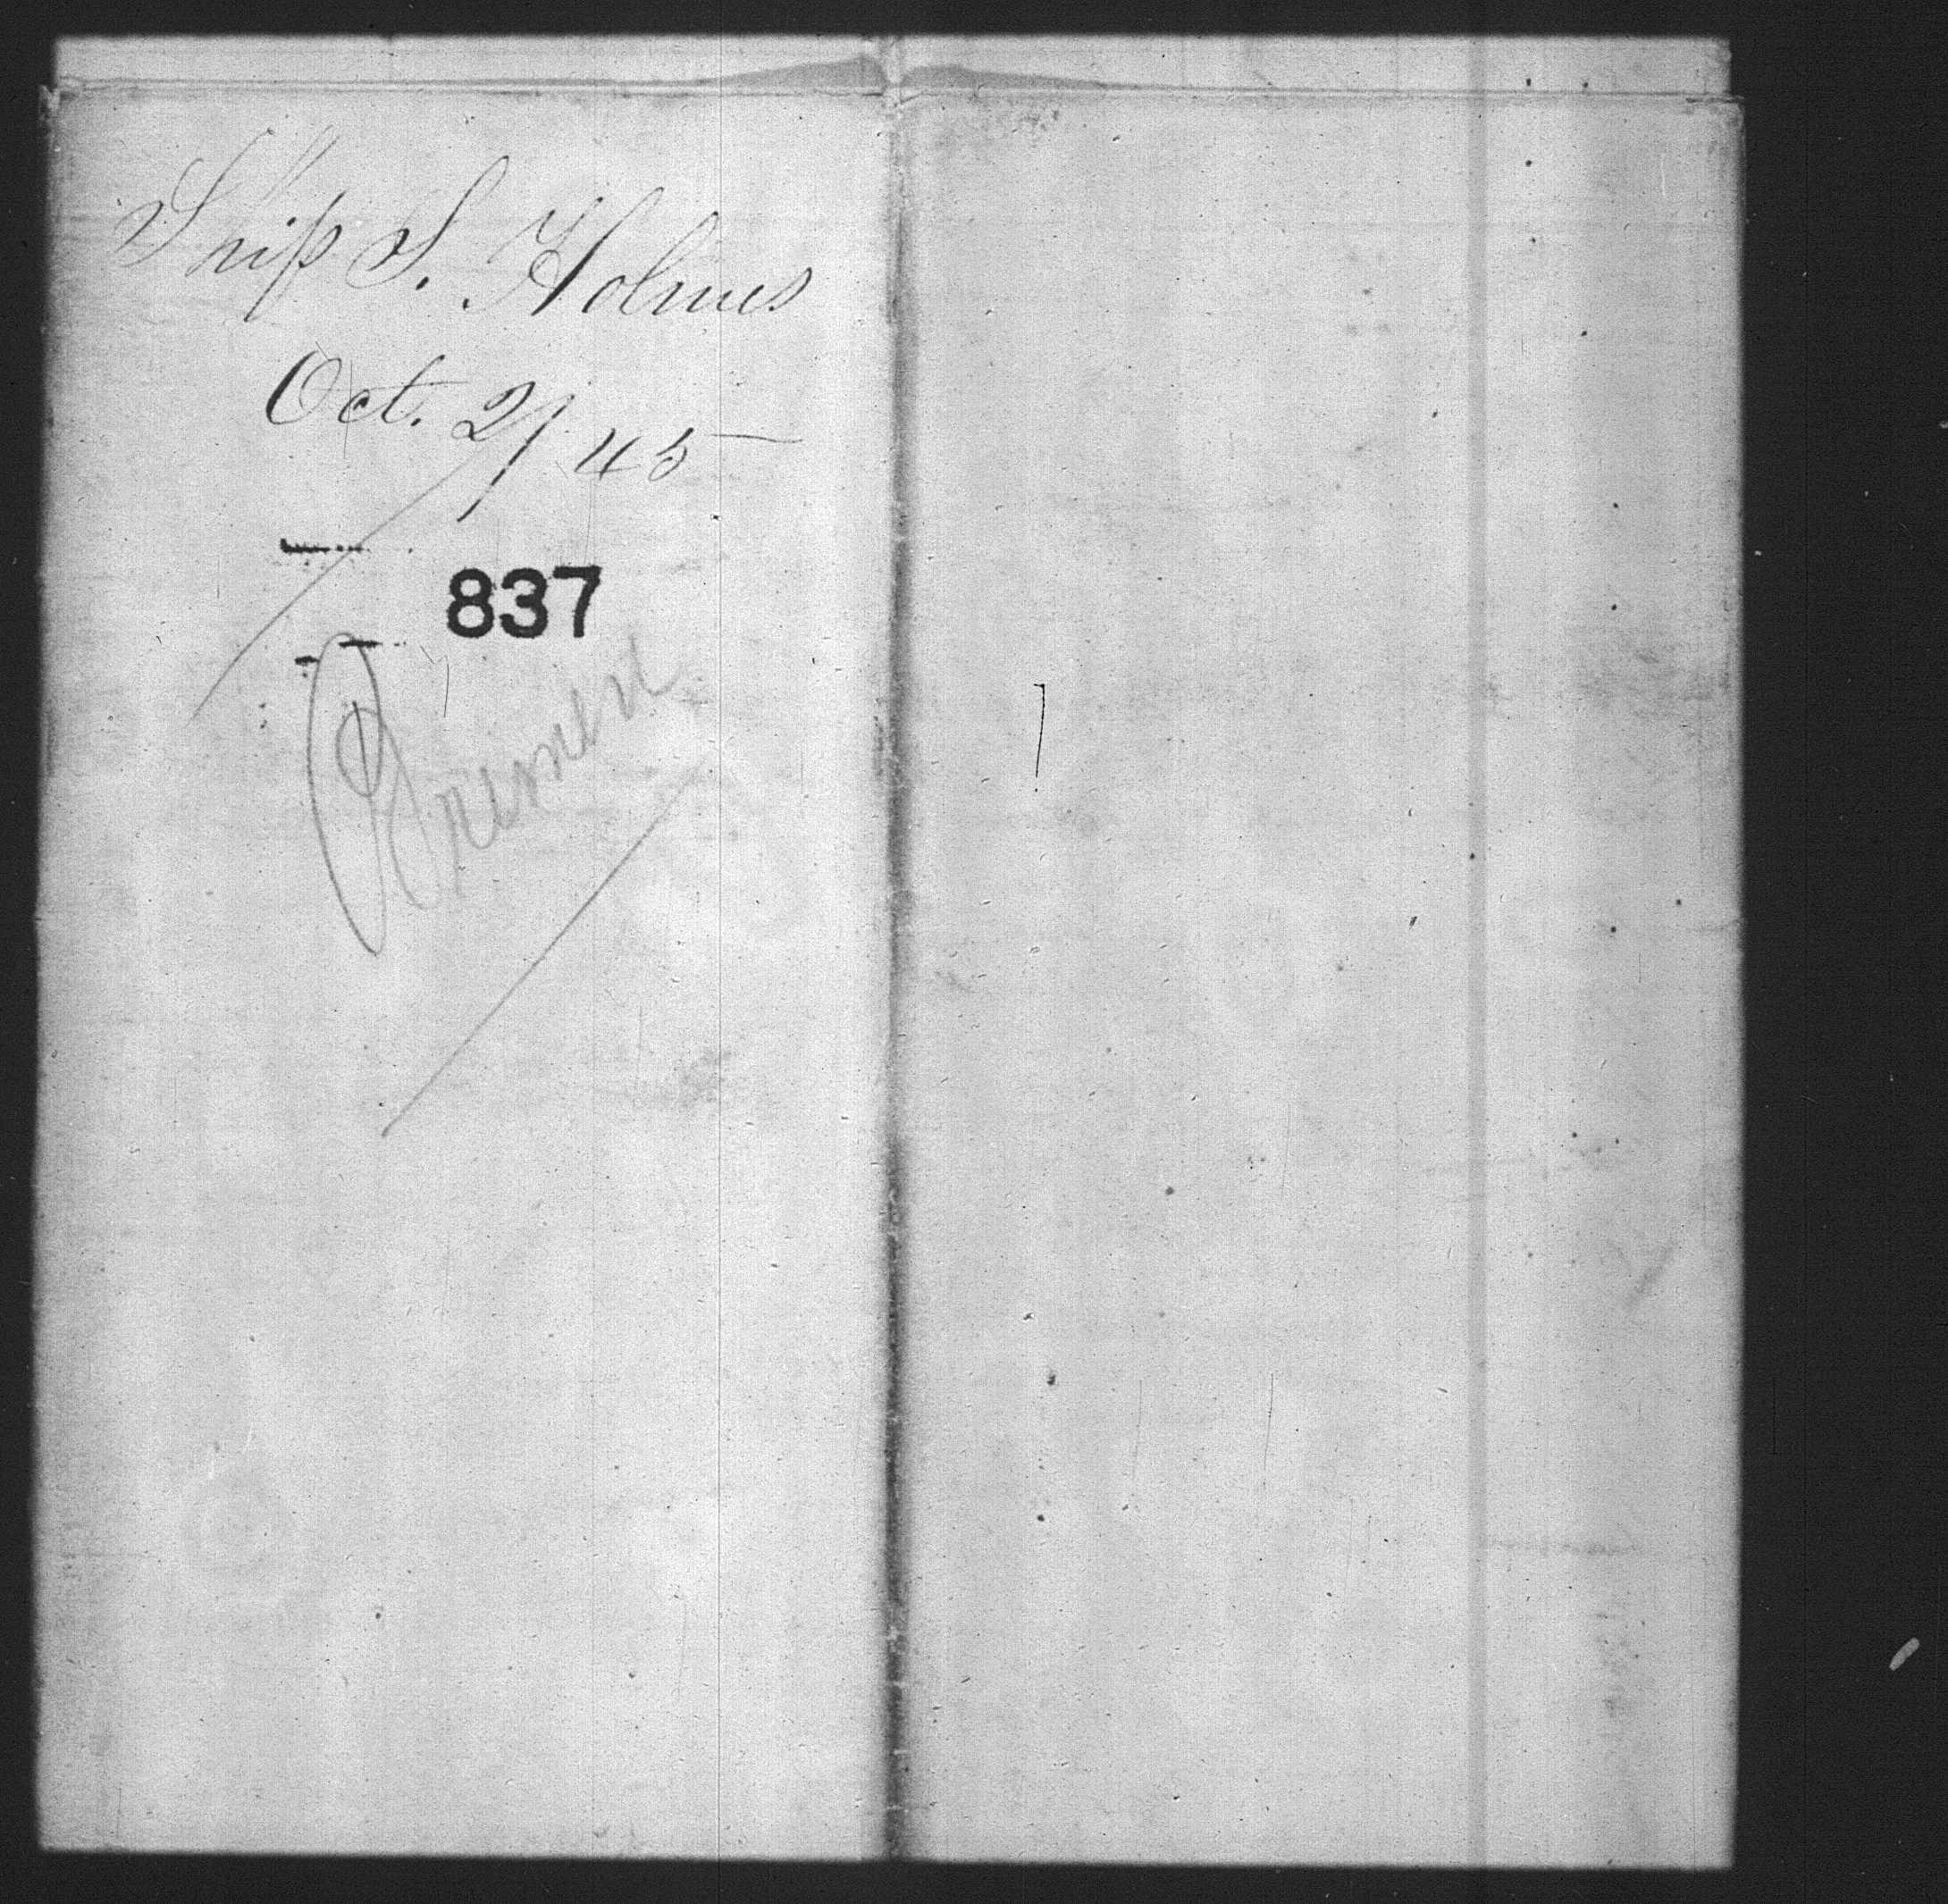 Ship S. Holmes
Oct. 2/45
837
Bremen